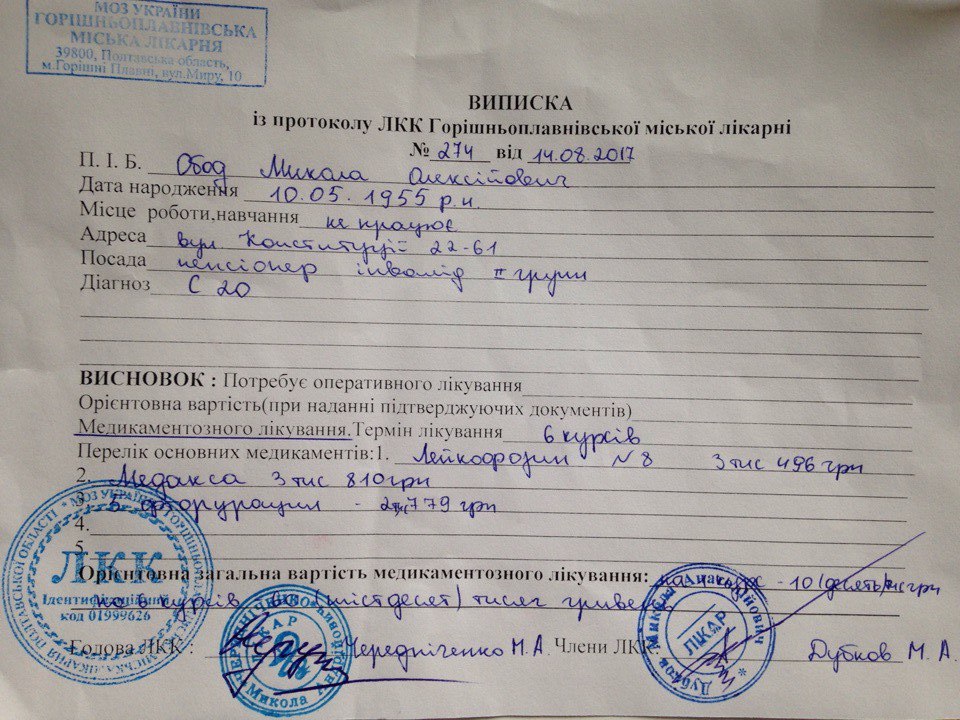 МОЗ УКРАЇНИ
ГОРІШНЬОПЛАВНІВСЬКА
МІСЬКА ЛІКАРНЯ
39800, Полтавська область,
м.Горішні Плавні, вул.Миру, 10
ВИПИСКА
із протоколу ЛКК Горішньоплавнівської міської лікарні
№ 274 від 14.08.2017
П. І. Б. Обод Микола Олексійович
Дата народження 10.05.1955 р.н.
Місце роботи,навчання не працює
Адреса вул. Конституції 22-61
Посада пенсіонер інвалід II групи
Діагноз С 20
ВИСНОВОК : Потребує оперативного лікування
Орієнтовна вартість(при наданні підтверджуючих документів)
Медикаментозного лікування.Термін лікування 6 курсів
Перелік основних медикаментів:1. Лейкофозин N8 3 тис 496 грн
2. Медакса 3 тис 810 грн
3. 5 фторурацил - 2тис 779 грн
4.
5.
Орієнтовна загальна вартість медикаментозного лікування: на курс - 10 (десять) тис грн
на 6 курсів 60 (шістдесят) тисяч гривень
Голова ЛКК : Чередніченко М.А. Члени ЛКК: Дубков М. А.
ЛКК
Ідентифікаційний
код 01999626
ЛІКАР
Микола
Дубков Микола Анатолійович
ЛІКАР